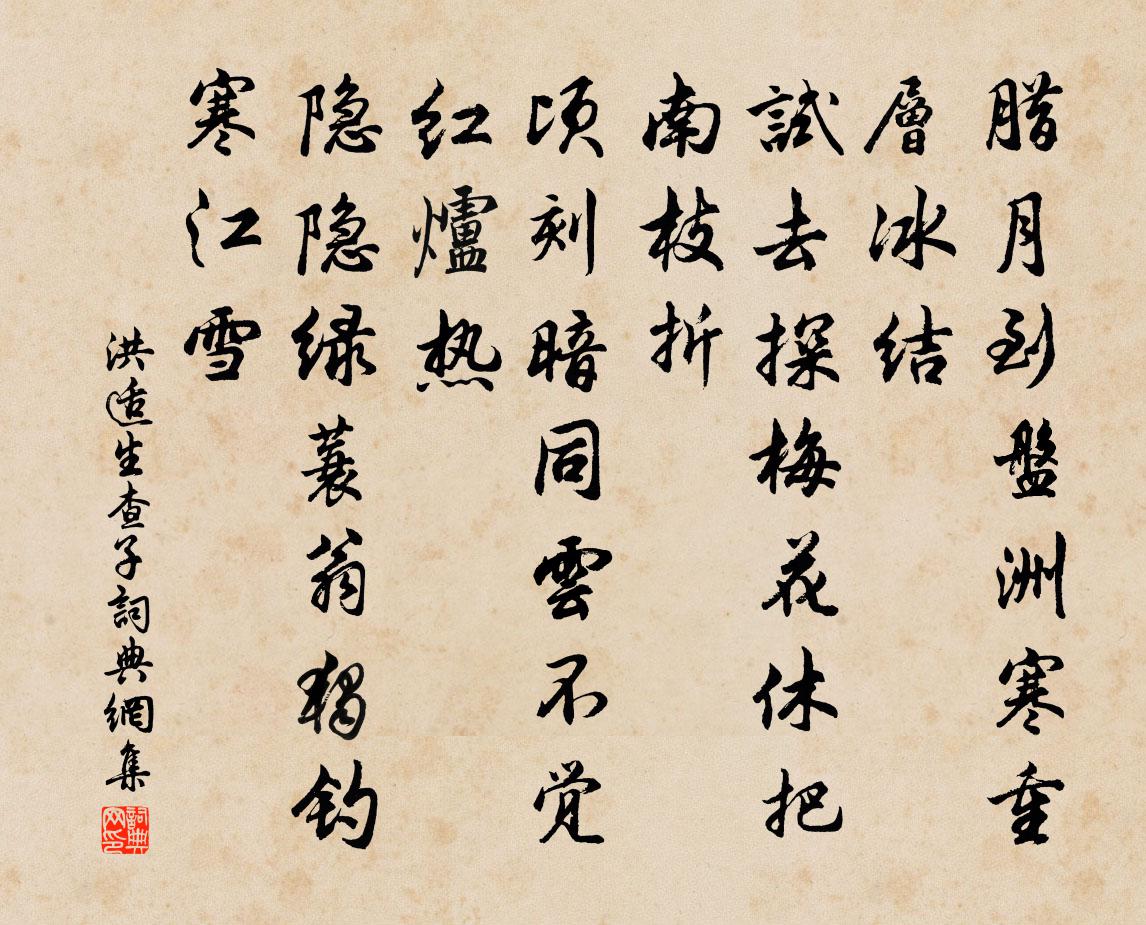 腊月到盤洲寒重
層冰结
試去探梅花休把
南枝折
顷刻暗同雲不觉
红爐热
隐隐绿蓑翁独钓
寒江雪
洪适生查子詞典網集
詞典网印